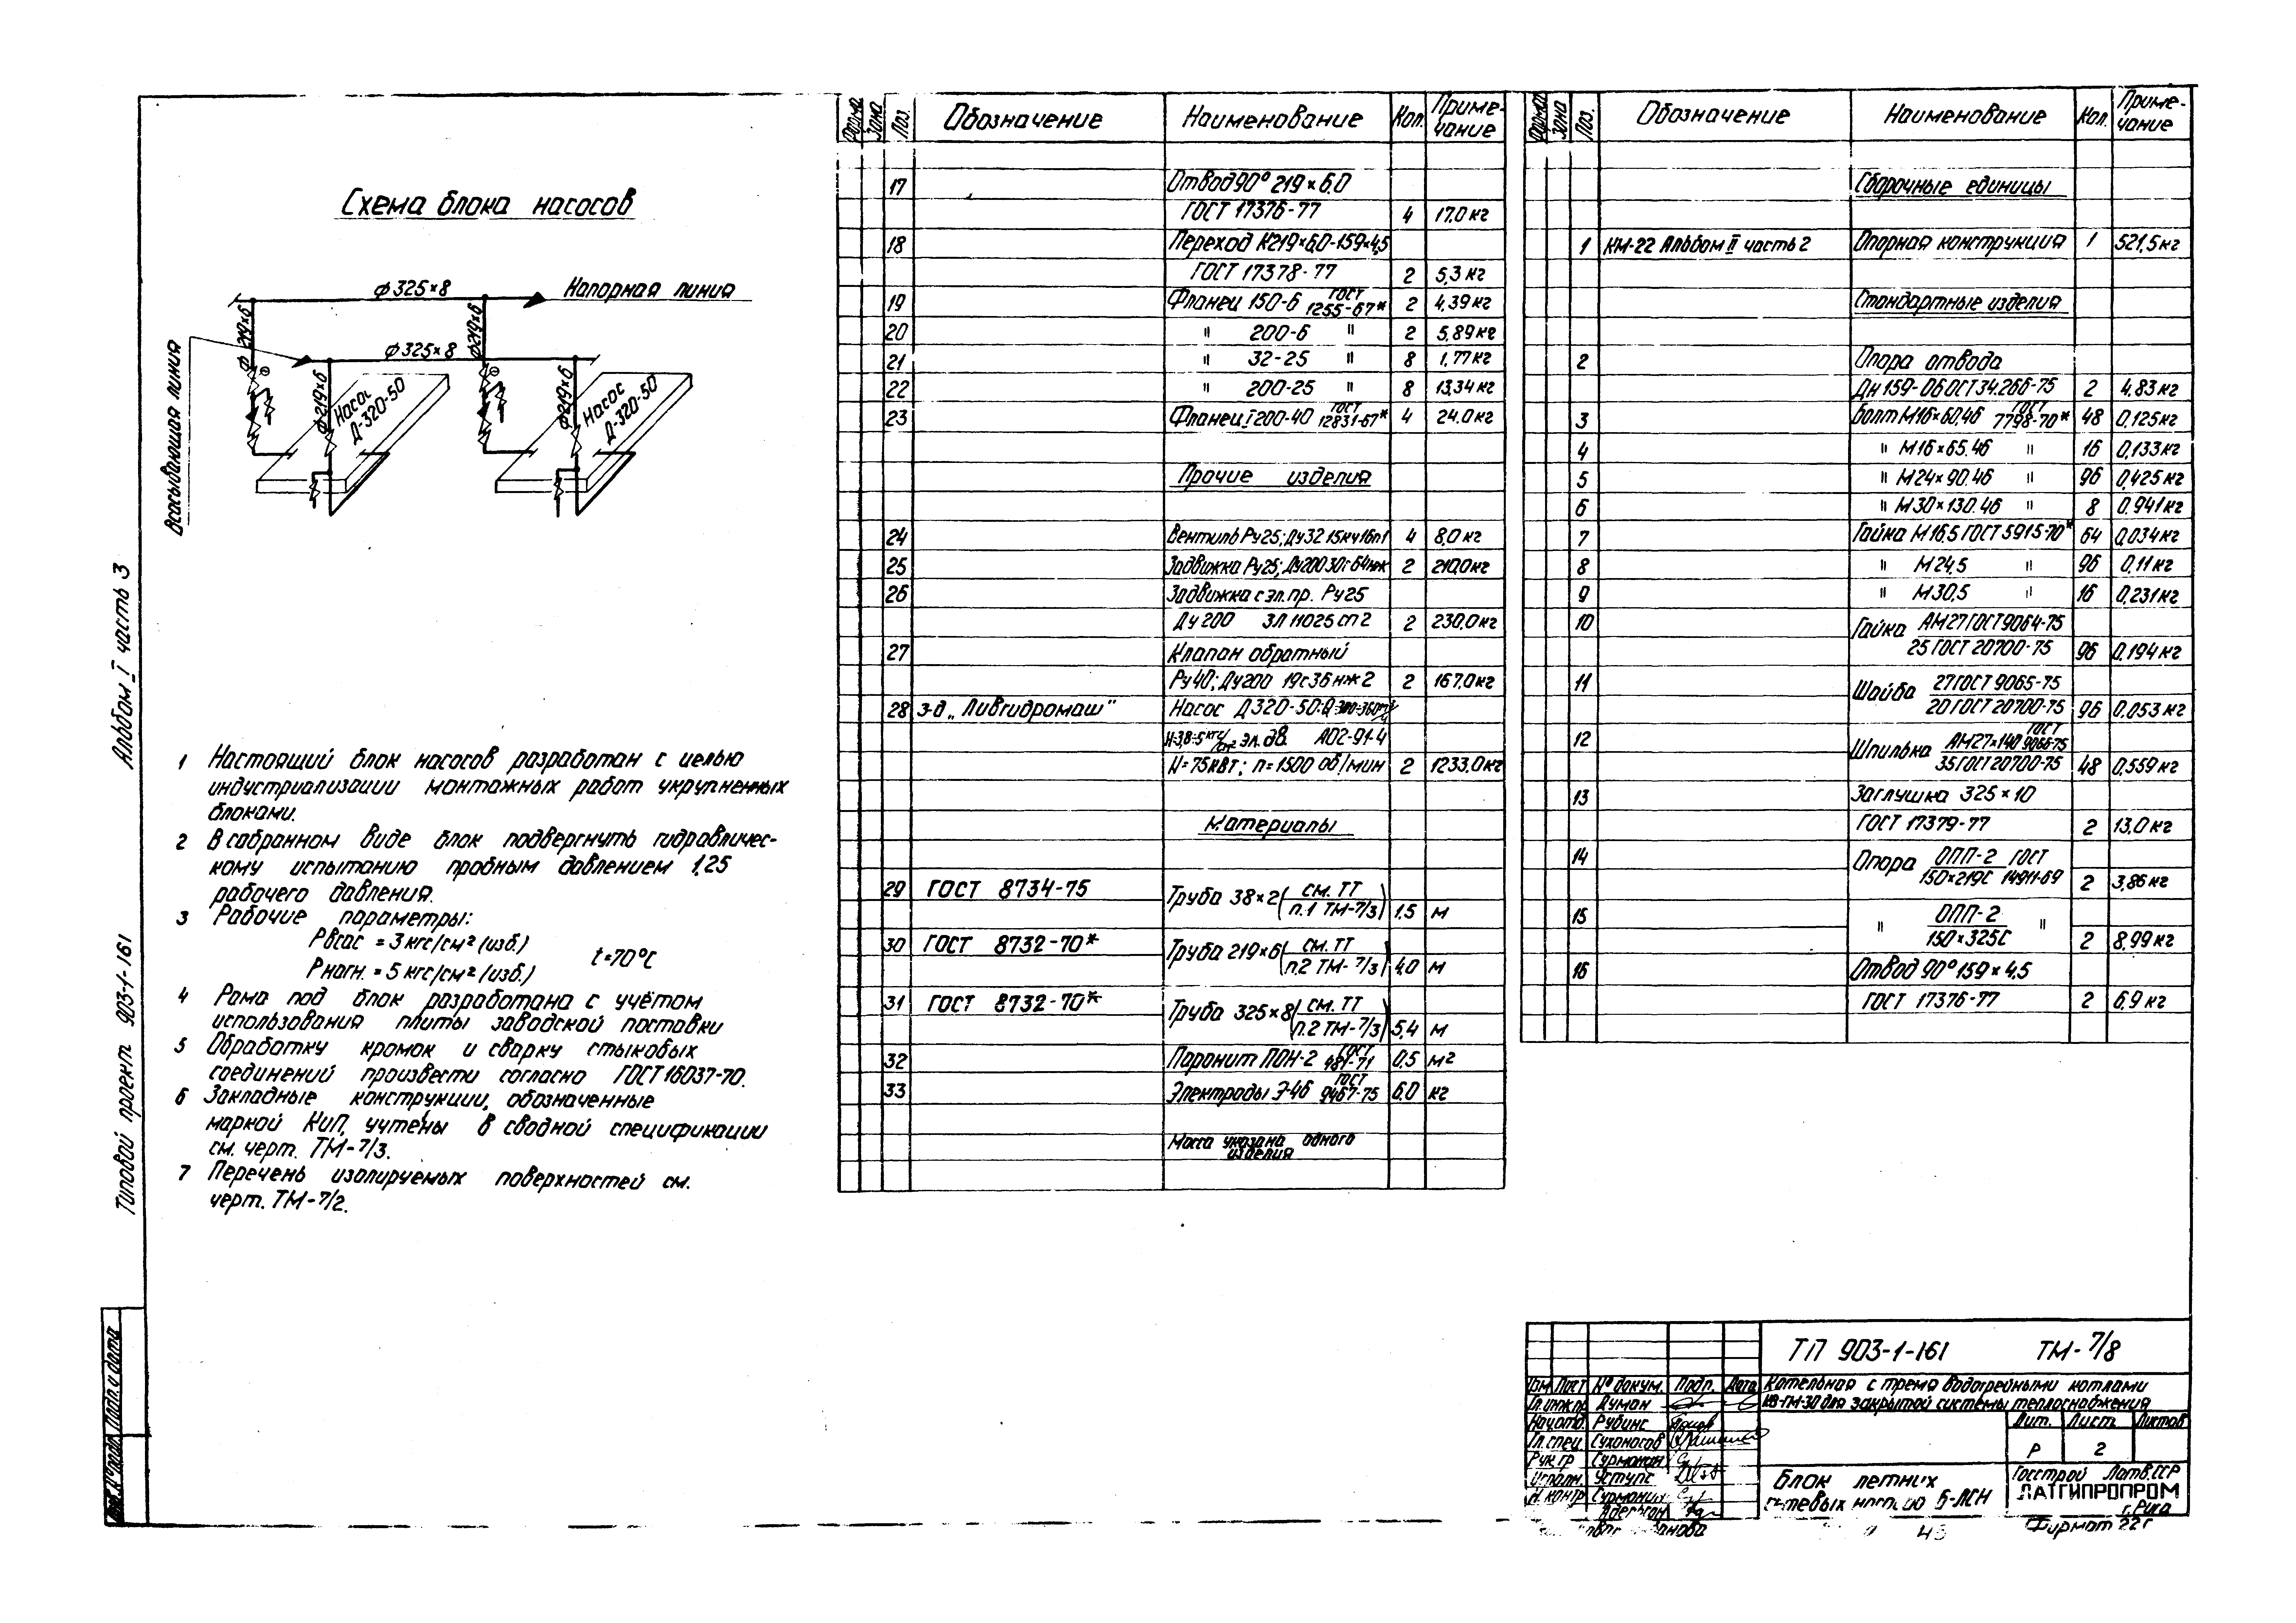 Схема блока насосов
ф325×8 Напорная линия
ф219×6 ф219×6
ф325×8
Всасывающая линия
ф219×6 ф219×6
Насос Д-320-50
Насос Д-320-50
Альбом I часть 3
Типовой проект 903-1-161
1 Настоящий блок насосов разработан с целью
индустриализации монтажных работ укрупненных
блоками.
2 В собранном виде блок подвергнуть гидравличес-
кому испытанию пробным давлением 1,25
рабочего давления.
3 Рабочие параметры:
Рвсас = 3 кгс/см² (изб.)
t=70°С
Рнагн. = 5 кгс/см² (изб.)
4 Рама под блок разработана с учётом
использования плиты заводской поставки
5 Обработку кромок и сварку стыковых
соединений произвести согласно ГОСТ 16037-70.
6 Закладные конструкции, обозначенные
маркой КиП, учтены в сводной спецификации
см. черт. ТМ-7/3.
7 Перечень изолируемых поверхностей см.
черт. ТМ-7/2.
Подп. и дата
Форма Зона Поз. Обозначение Наименование Кол. Приме-чание
17 Отвод 90° 219×6,0
ГОСТ 17376-77 4 17,0 кг
18 Переход К219×6,0-159×4,5
ГОСТ 17378-77 2 5,3 кг
19 Фланец 150-6 ГОСТ 1255-67* 2 4,39 кг
20 " 200-6 " 2 5,89 кг
21 " 32-25 " 8 1,77 кг
22 " 200-25 " 8 13,34 кг
23 Фланец I 200-40 ГОСТ 12831-67* 4 24,0 кг
Прочие изделия
24 Вентиль Ру25; Ду32 15кч16п1 4 8,0 кг
25 Задвижка Ру25; Ду200 30с64нж 2 210,0 кг
26 Задвижка с эл.пр. Ру25
Ду 200 ЗЛ 11025 сп2 2 230,0 кг
27 Клапан обратный
Ру40; Ду200 19с36нж2 2 167,0 кг
28 з-д „Ливгидромаш" Насос Д320-50: Q=300÷360 м³/ч
Н=3,8÷5 кгс/см² эл. дв. АО2-91-4
N=75 кВт; n=1500 об/мин 2 1233,0 кг
Материалы
29 ГОСТ 8734-75 Труба 38×2 (см. ТТ п.1 ТМ-7/3) 1,5 м
30 ГОСТ 8732-70* Труба 219×6 (см. ТТ п.2 ТМ-7/3) 4,0 м
31 ГОСТ 8732-70* Труба 325×8 (см. ТТ п.2 ТМ-7/3) 5,4 м
32 Паронит ПОН-2 ГОСТ 481-71 0,5 м²
33 Электроды Э-46 ГОСТ 9467-75 6,0 кг
Масса указана одного
изделия
Форма Зона Поз. Обозначение Наименование Кол. Приме-чание
Сборочные единицы
1 КМ-22 Альбом II часть 2 Опорная конструкция 1 521,5 кг
Стандартные изделия
2 Опора отвода
Дн 159-06 ОСТ 34.266-75 2 4,83 кг
3 Болт М16×60.46 ГОСТ 7798-70* 48 0,125 кг
4 " М16×65.46 " 16 0,133 кг
5 " М24×90.46 " 96 0,425 кг
6 " М30×130.46 " 8 0,941 кг
7 Гайка М16.5 ГОСТ 5915-70* 64 0,034 кг
8 " М24.5 " 96 0,11 кг
9 " М30.5 " 16 0,231 кг
10 Гайка АМ27 ГОСТ 9064-75
25 ГОСТ 20700-75 96 0,194 кг
11 Шайба 27 ГОСТ 9065-75
20 ГОСТ 20700-75 96 0,053 кг
12 Шпилька АМ27×140 ГОСТ 9066-75
35 ГОСТ 20700-75 48 0,559 кг
13 Заглушка 325×10
ГОСТ 17379-77 2 13,0 кг
14 Опора ОПП-2 ГОСТ
150×219С 14911-69 2 3,86 кг
15 " ОПП-2 "
150×325С 2 8,99 кг
16 Отвод 90° 159×4,5
ГОСТ 17376-77 2 6,9 кг
ТП 903-1-161 ТМ-7/8
Изм. Лист № докум. Подп. Дата
Котельная с тремя водогрейными котлами
КВ-ГМ-30 для закрытой системы теплоснабжения
Гл.инж.пр. Думан
Нач.отд. Рубинс
Гл.спец. Сухоносов
Рук.гр Сурмонин
Исполн. Уступс
Н.контр Сурмонин
Лит. Лист Листов
Р 2
Блок летних
сетевых насосов Б-ЛСН
Госстрой Латв.ССР
ЛАТГИПРОПРОМ
г.Рига
Формат 22г